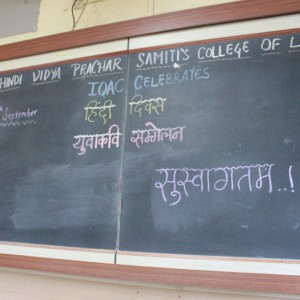 HINDI VIDYA PRACHAR SAMITI'S COLLEGE OF L
IQAC CELEBRATES
September
हिंदी दिवस
युवाकवि सम्मेलन
सुस्वागतम..!